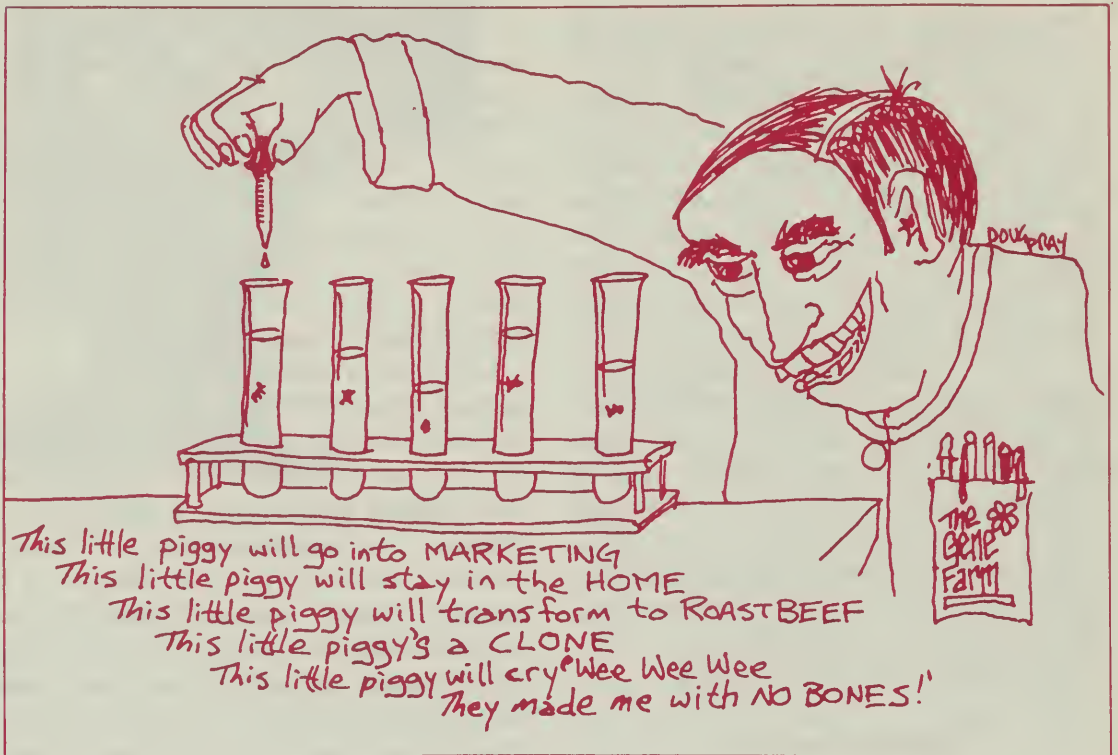 DOUG PRAY
The
Gene
Farm
This little piggy will go into MARKETING
This little piggy will stay in the HOME
This little piggy will transform to ROAST BEEF
This little piggy's a CLONE
This little piggy will cry "Wee Wee Wee
They made me with NO BONES!"